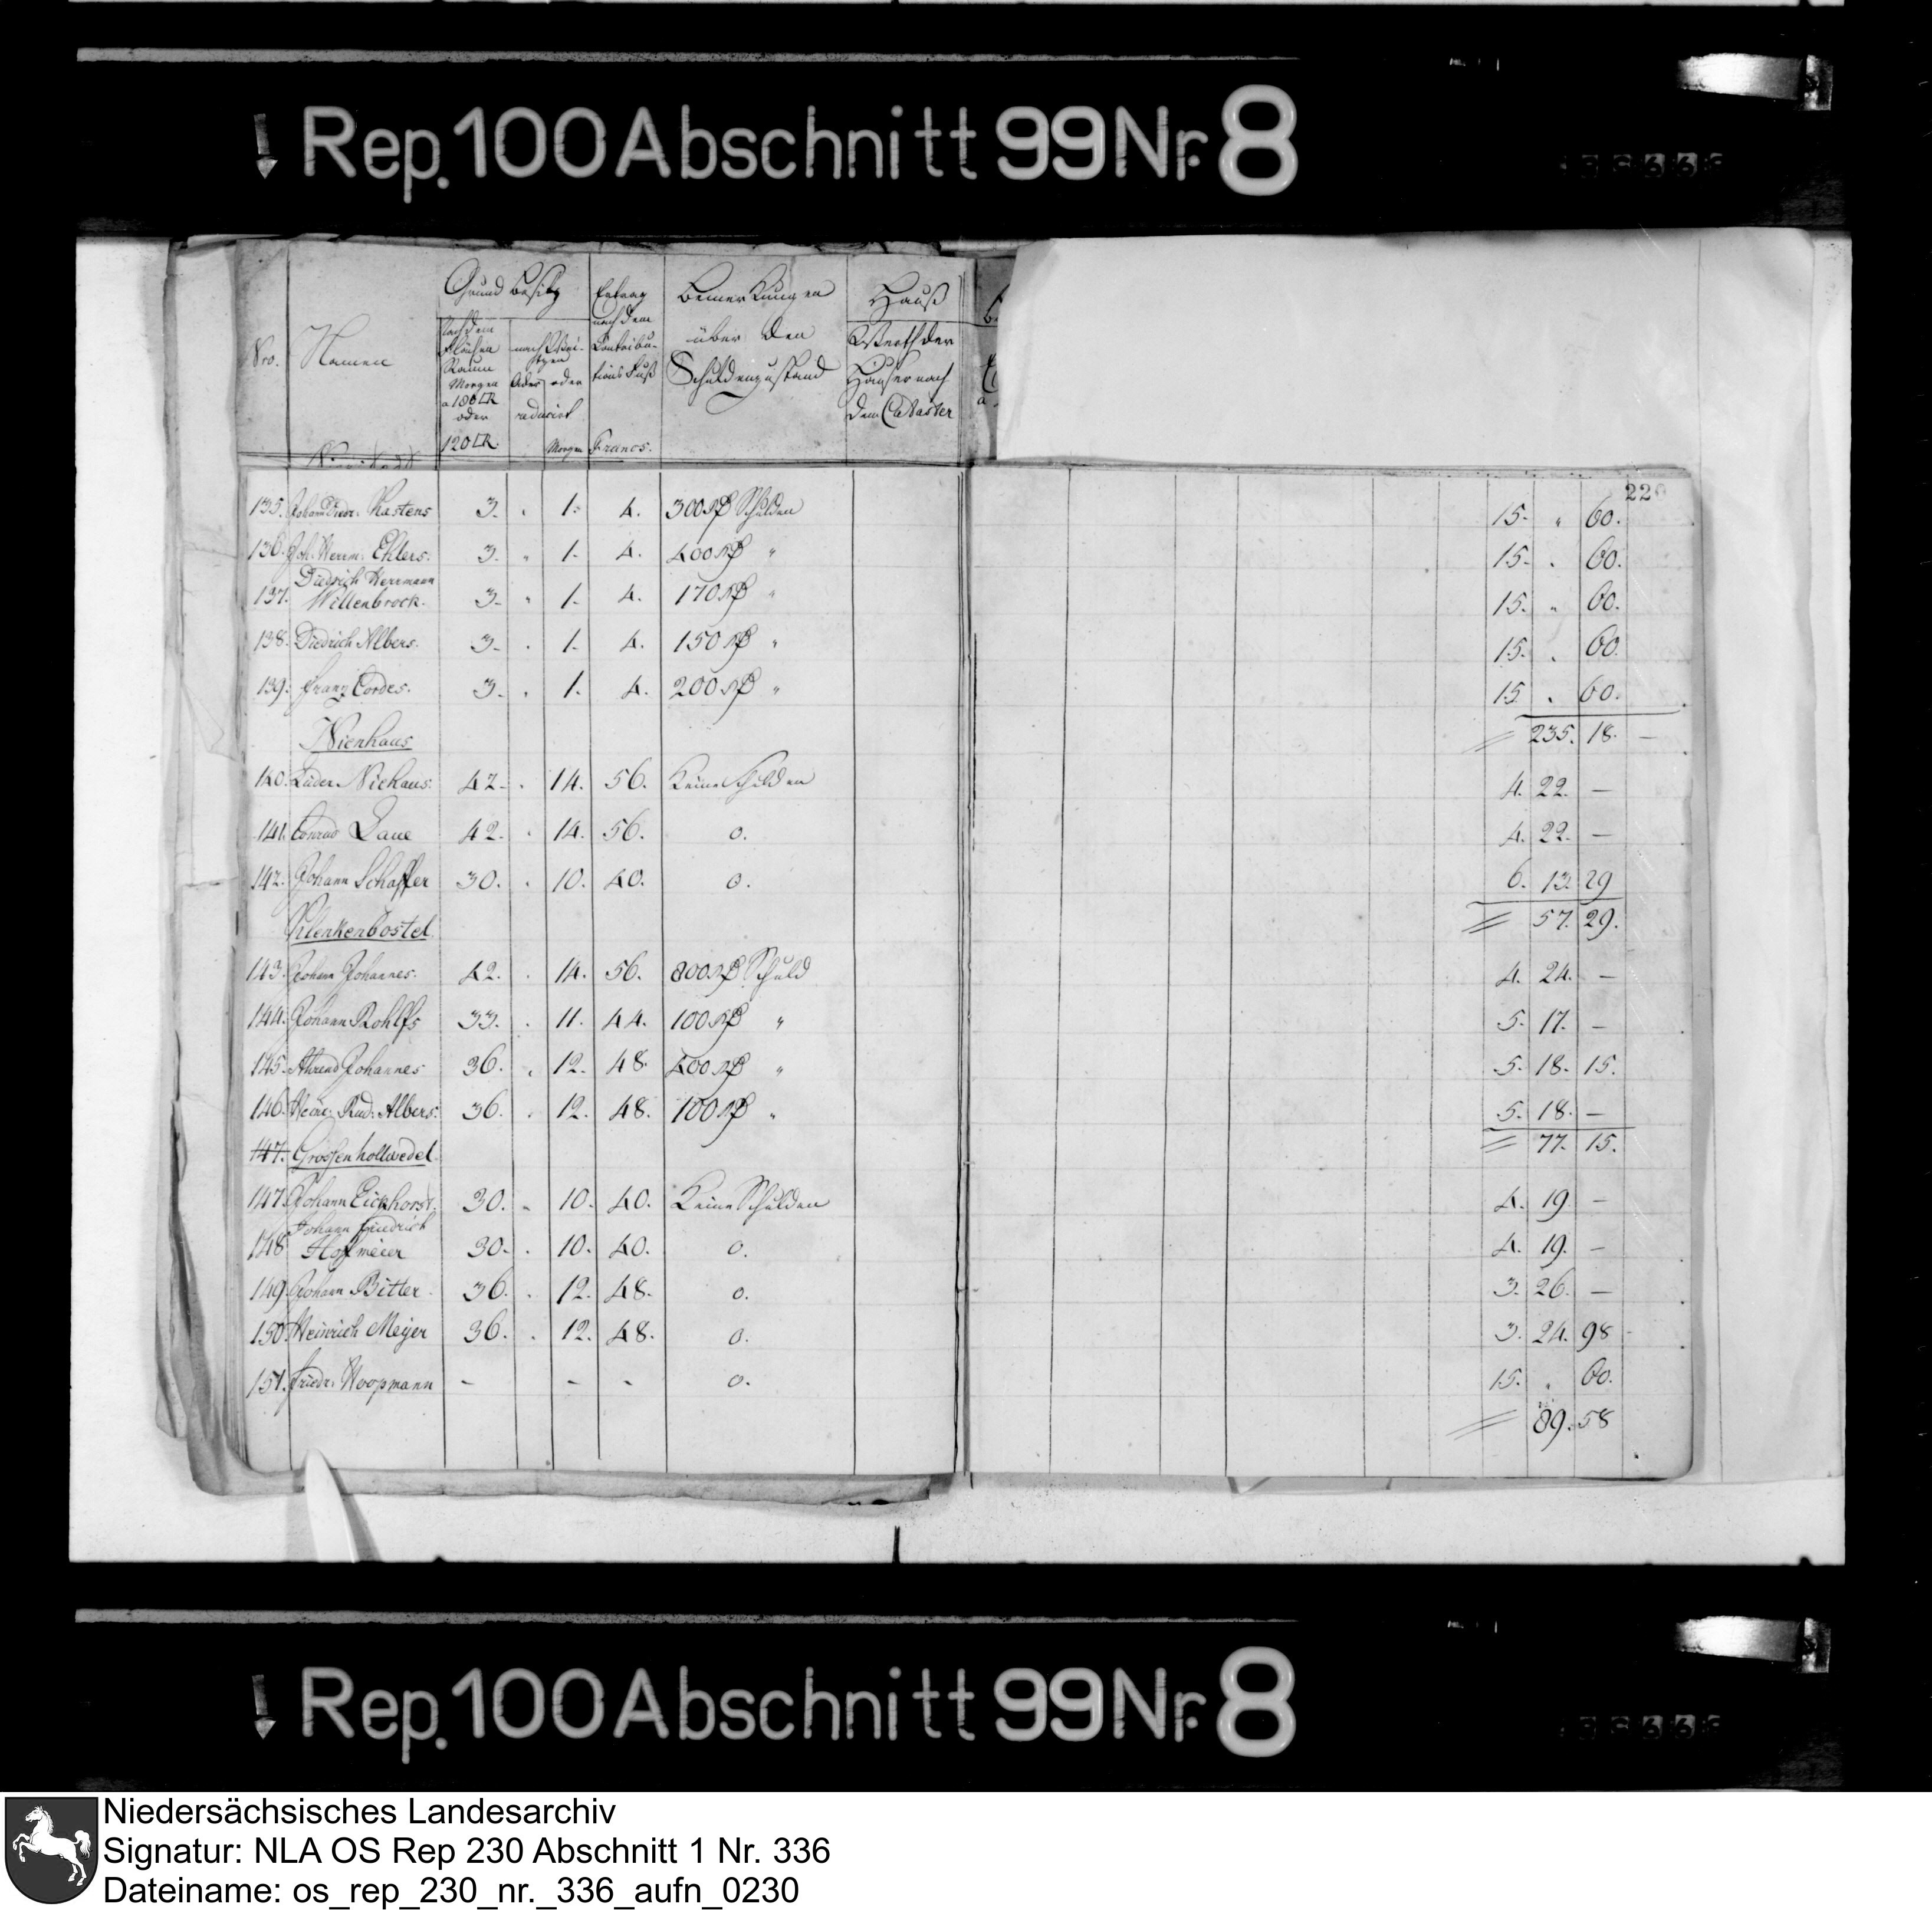 Rep. 100 Abschnitt 99 Nr. 8
220
Nro. Namen
Grund besitz
nach dem Flächen Raum Morgen a 180 □R oder 120 □R.
oder reducirt
Morgen
Ertrag nach dem Contribu-tions Fuß
Francs.
Bemerkungen über den Schuldenzustand
Hauß
Werth der Häuser nach dem Cataster
135. Johann Diedr. Kastens 3. " 1. 4. 300 Schulden 15. " 60.
136. Joh. Herrm. Ehlers. 3. " 1. 4. 400 " 15. " 60.
137. Diedrich Herrmann Willenbrock. 3. " 1. 4. 170 " 15. " 60.
138. Diedrich Albers. 3. " 1. 4. 150 " 15. " 60.
139. Franz Cordes. 3. " 1. 4. 200 " 15 " 60.
235. 18. —
Nienhaus
140. Lüder Niehaus. 42. " 14. 56. Keine Schulden 4. 22. —
141. Conrad Laue 42. " 14. 56. 0. 4. 22. —
142. Johann Schaffer 30. " 10. 40. 0. 6. 13. 29
57. 29.
Klenkenbostel
143. Johann Johannes. 42. " 14. 56. 800 Schuld 4. 24. —
144. Johann Rohlfs 33. " 11. 44. 100 " 5. 17. —
145. Ahrend Johannes 36. " 12. 48. 400 " 5. 18. 15.
146. Heinr. Rud. Albers. 36. " 12. 48. 100 " 5. 18. —
77. 15.
147. Grossenhollwedel.
147. Johann Eickhorst. 30. " 10. 40. Keine Schulden 4. 19. —
148 Johann Hindrich Hoffmeier 30. " 10. 40. 0. 4. 19. —
149. Johann Bitter. 36. " 12. 48. 0. 3. 26. —
150. Heinrich Meijer 36. " 12. 48. 0. 3. 24. 98
151. Friedr. Hoopmann - - - 0. 15. " 60.
89. 58
Rep. 100 Abschnitt 99 Nr. 8
Niedersächsisches Landesarchiv
Signatur: NLA OS Rep 230 Abschnitt 1 Nr. 336
Dateiname: os_rep_230_nr._336_aufn_0230